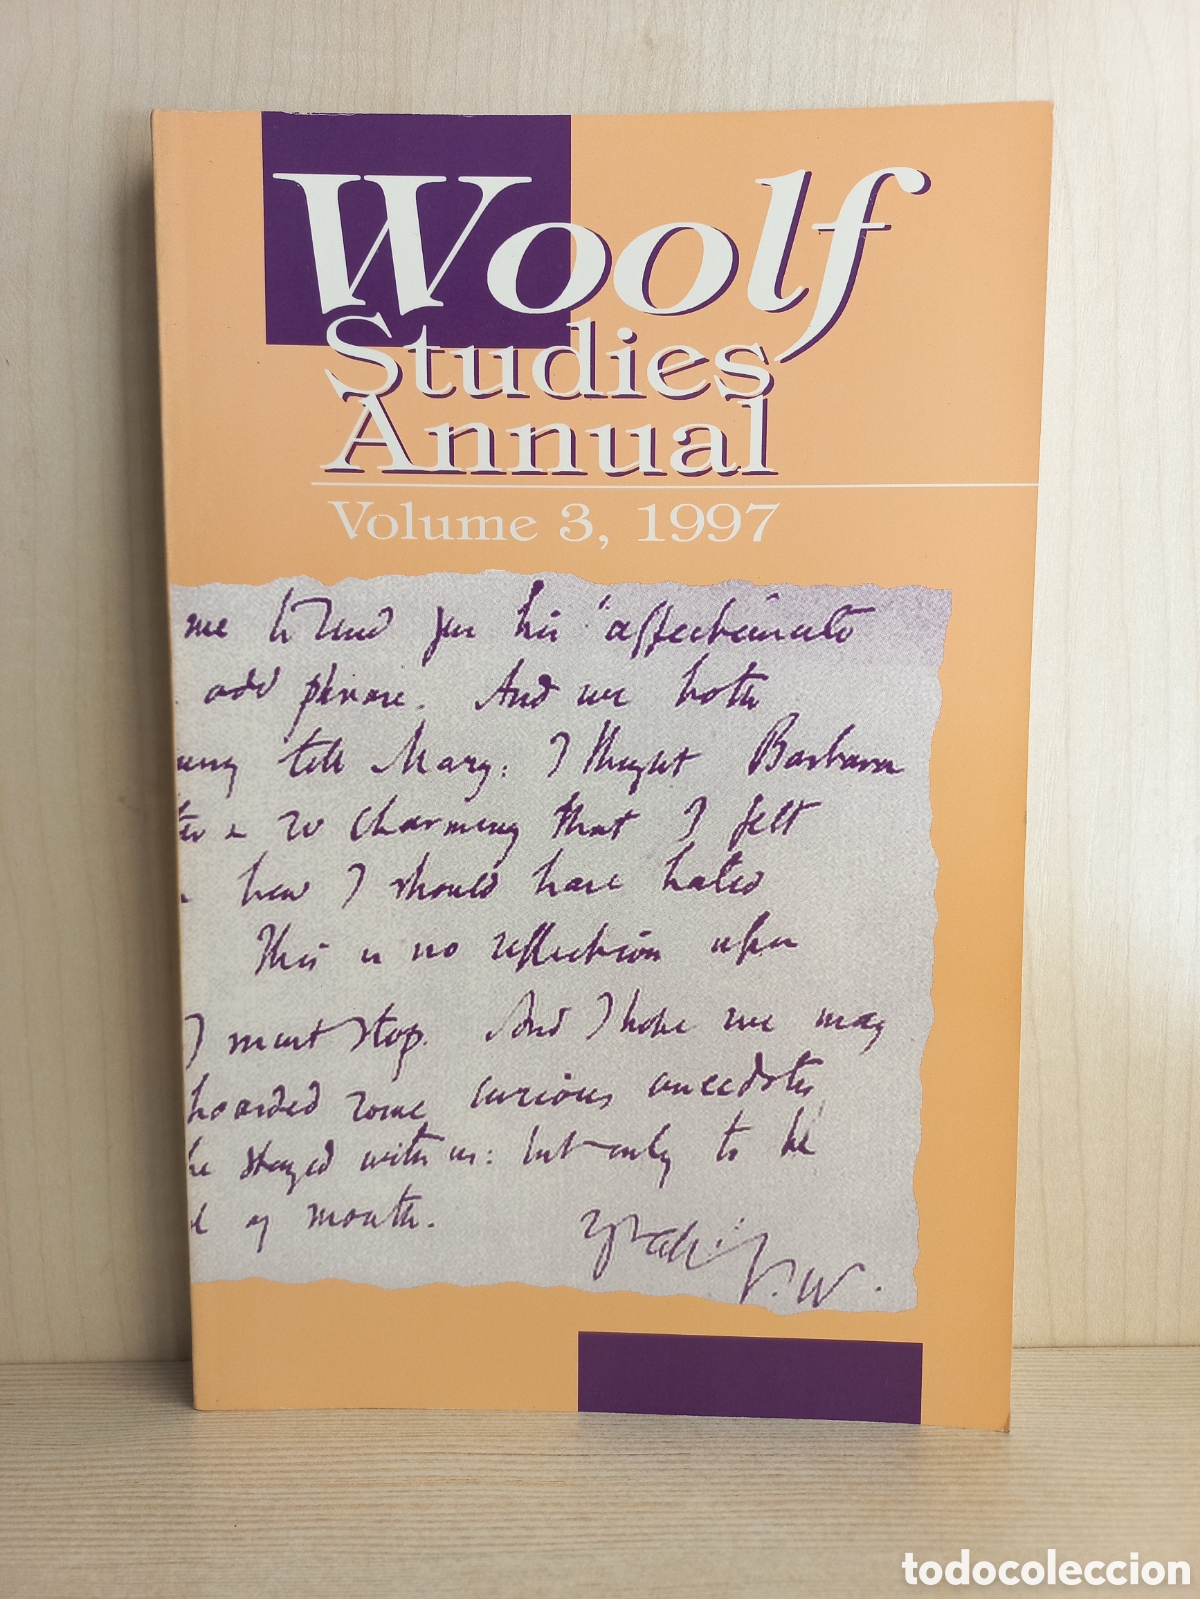 Woolf
Studies
Annual
Volume 3, 1997
me to send you his 'affectionate
add phrase. And we both
tell Mary: I thought Barbara
so charming that I felt
how I should have hated
This is no reflection upon
I must stop. And I hope we may
hoarded some curious anecdotes
he stayed with us: but only to be
of mouth.
V.W.
todocoleccion